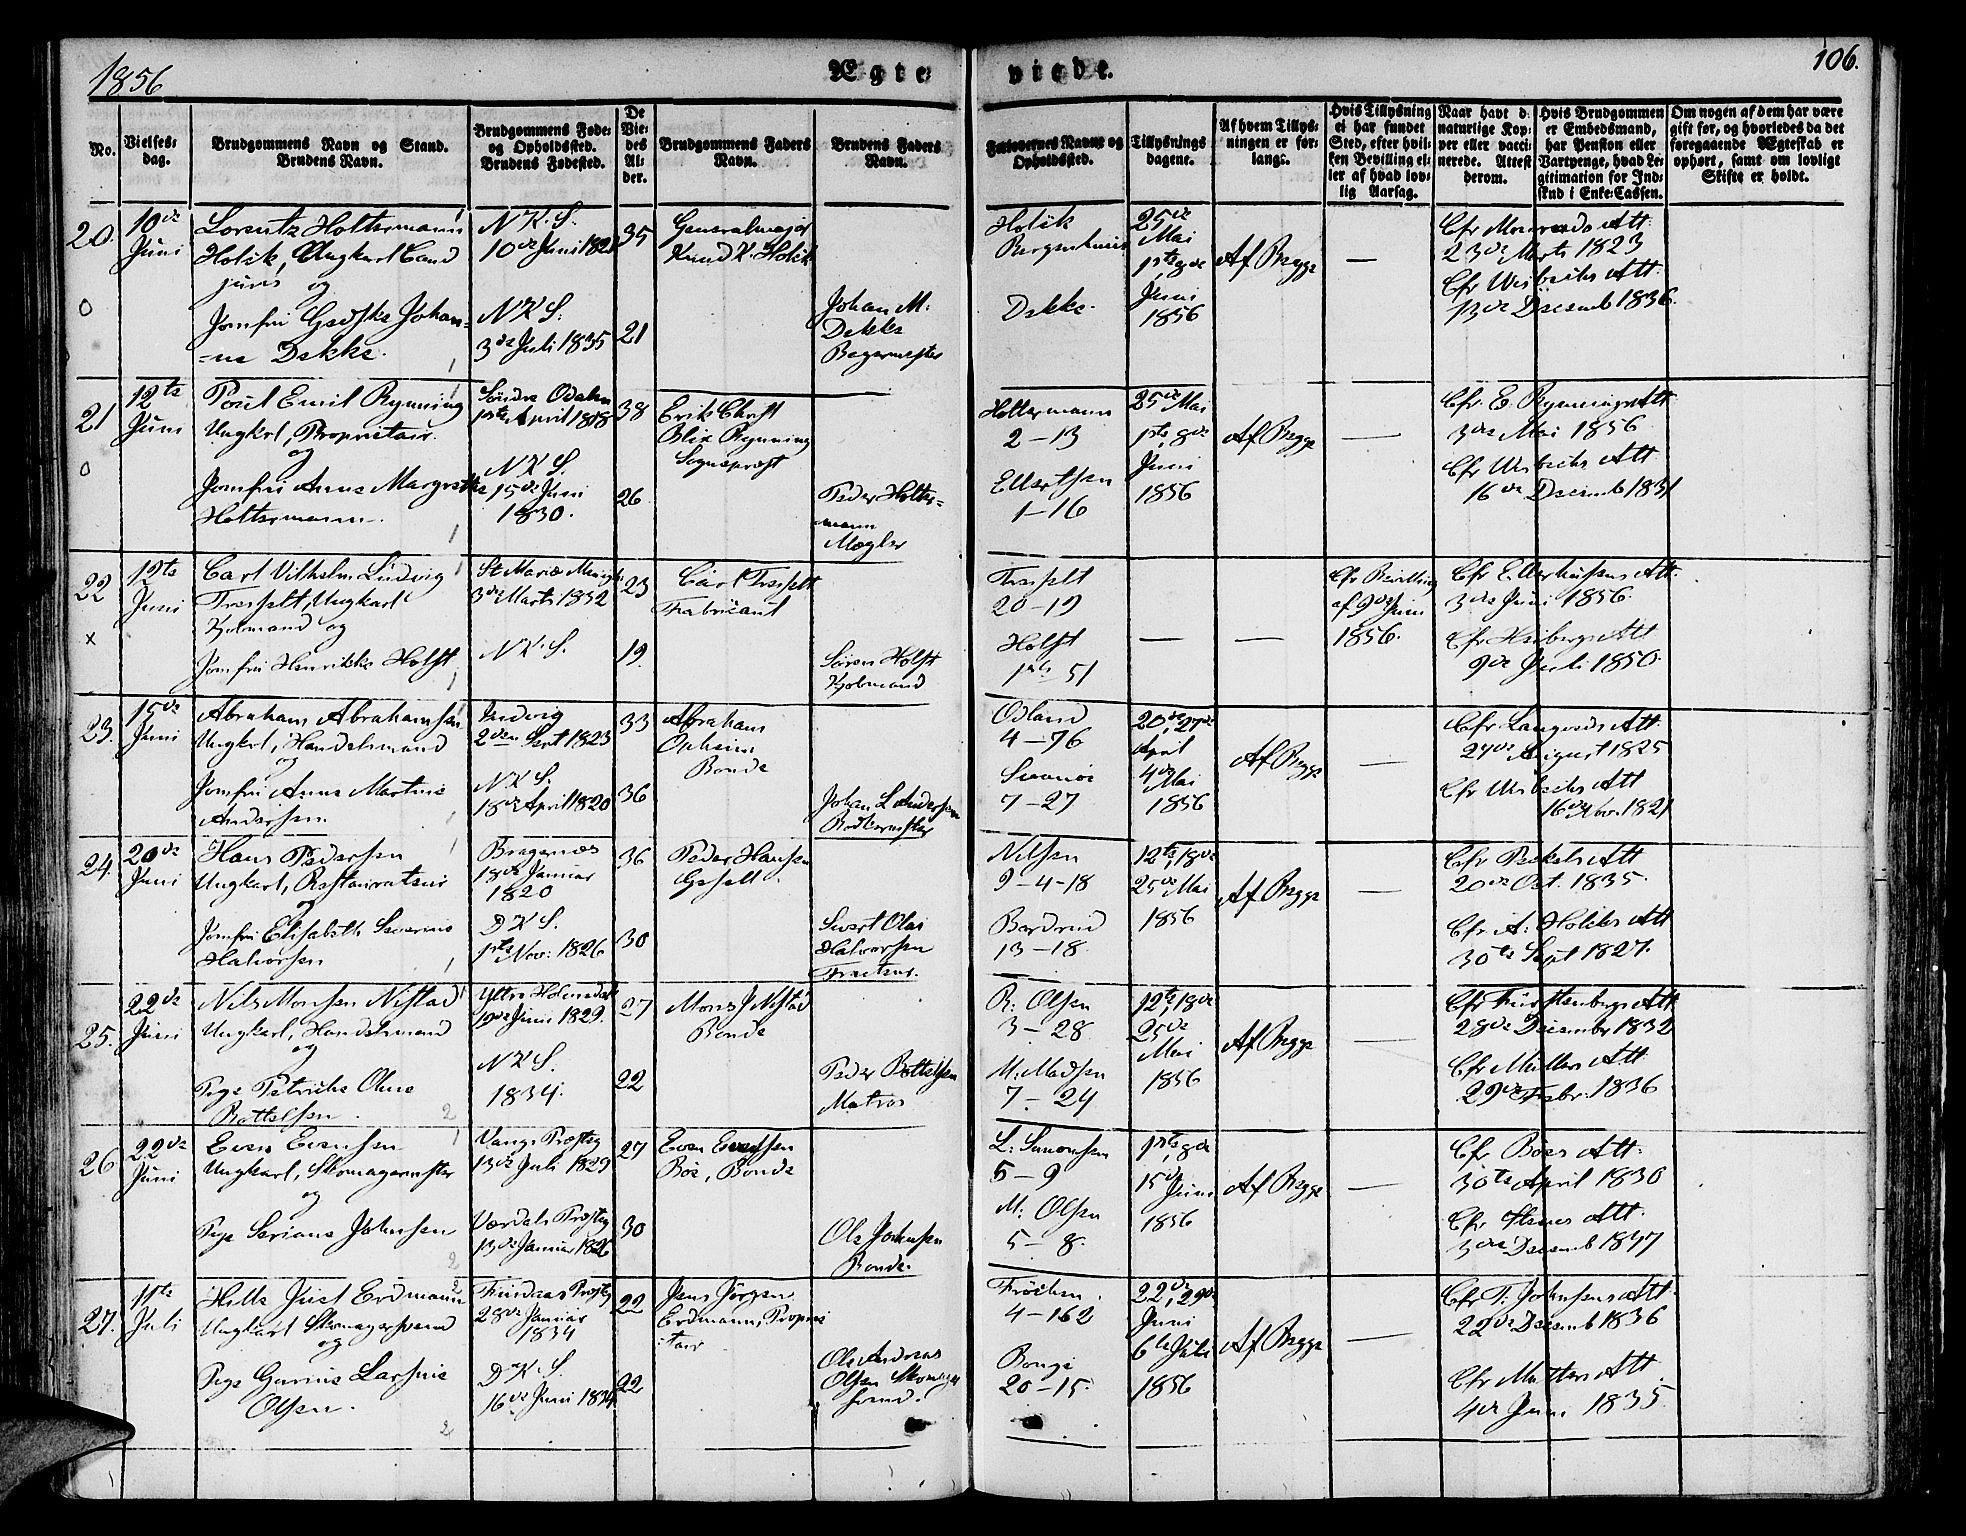 1856
Ægte
viede.
106.
No.
Vielses-
dag.
Brudgommens Navn og Stand.
Brudens Navn.
Brudgommens Føde-
og Opholdssted.
Brudens Fødested.
De
Vie-
des
Al-
der.
Brudgommens Faders
Navn.
Brudens Faders
Navn.
Forlovernes Navne og
Opholdssted.
Tillysnings
dagene.
Af hvem Tillys-
ningen er for-
langt.
Hvis Tillysning
ei har fundet
Sted, efter hvil-
ken Bevilling el-
ler af hvad lov-
lig Aarsag.
Naar havt d.
naturlige Kop-
per eller vacci-
nerede. Attest
derom.
Hvis Brudgommen
er Embedsmand,
har Pension eller
Vartpenge, hvad Le-
gitimation for Ind-
skud i Enke-Cassen.
Om nogen af dem har være
gift før, og hvorledes da det
foregaaende Ægteskab er
ophørt, samt om lovligt
Skifte er holdt.
20.
10de
Juni
Lorentz Holtermann
Holck, Ungkarl Cand
juris og
Jomfru Gedske Johan-
-ne Dekke.
N. K. S.
10de Juni 1821
N K S.
3de Juli 1835
35
21
Generalmajor
Knud K. Holck
Johan M:
Dekke
Bagermester
Holck
Bergenhuus
Dekke.
25de
Mai
1ste, 8de
Juni
1856
Af Begge
—
23de Marts 1823
13de Decemb 1836.
21
12te
Juni
Poul Emil Rynning
Ungkrl, Proprietair.
og
Jomfru Anne Margrethe
Holtermann.
Søndre Odalen
1ste April 1818
N K S.
15de Juni
1830.
38
26
Erik Christ
Blix Rynning
Sognepræst
Peder Holter-
mann
Mægler
Holtermann
2 – 13
Ellertsen
1 – 16
25de Mai
1ste, 8de
Juni
1856
Af Begge
—
Cfr. E. Rynnings Att
3die Mai 1856
16de Decemb 1831
22
12te
Juni
Carl Vilhelm Ludvig
Tresselt, Ungkarl
Kjøbmand og
Jomfru Henrikke Holst
3de Marts 1832
N K. S.
23
19.
Carl Tresselt
Fabricant
Søren Holst
Kjøbmand
Tresselt
20 – 19
Holst
51
—
—
Cfr Bevilling
af 9de Juni
1856.
Cfr Ellerhusens Att.
3die Juni 1856.
Cfr Heibergs Att.
9de Juli 1850.
23.
15de
Juni
Abraham Abrahamsen
Ungkrl, Handelsmand
og
Jomfru Anne Martine
Andersen.
Indvig
2den Sept 1823
N K S.
18de April 1820
33
36
Abraham
Opheim
Bonde
Johan L Andersen
Bødkermster
Odland
4 – 76
Svanøe
7 – 27
20de, 27de
April
4de
Mai
1856
Af Begge
—
24de August 1825
16de Nov. 1821
24.
20de
Juni
Hans Pedersen
Ungkarl, Restaurateur
og
Jomfru Elisabeth Severine
Halvorsen
Bragernæs
18de Januar
1820
D K S.
1ste Nov: 1826
36
30
Peder Hansen
Gesell.
Sivert Olai
Halvorsen
Nilsen
9 – 4 – 18
13 – 18.
12te, 18de
25de Mai
1856
Af Begge
—
20de Oct. 1835.
Cfr A. Holcks Att
30te Sept 1827.
25.
22de
Juni
Nils Monsen Nistad
Ungkarl, Handelsmand
og
Pige Petrikke Oline
Bottelsen.
19de Juni 1829.
N K S.
1834.
27
22
Mons J Nistad
Bonde
Peder Bottelsen
Matros
R. Olsen
3 – 28
M. Madsen
7 – 24
12te, 18de
25de
Mai
1856
Af Begge
—
Cfr Fürstenbergs Att
28de December 1832
Cfr Müllers Att.
29de Febr. 1836
26
22de
Juni
Even Evensen
Ungkarl, Skomagermster
og
Pige Seriane Johnsen
Vangs Præsteg
13de Juli 1829
Værdals Præsteg
13de Januar 1826
27
30
Even Evensen
Bøe, Bonde
Ole Johnsen
Bonde.
L. Simonsen
5 – 9
M. Olsen
5 – 8.
1ste, 8de
15de
Juni
1856
Af Begge
—
Cfr Bøes Att.
30te April 1830
3die Decemb 1847
27.
11te
Juli
Helle Juel Erdmann
Ungkarl Skomagersvend
og
Pige Gurine Larsine
Olsen.
Trundnæs Præsteg
28de Januar
1834
D K S.
16de Juni 1834
22
22
Jens Jørgen
Erdmann, Propriе
-tair
Ole Andreas
Olsen Skomager
svend.
Frøchen.
4 – 162
20 – 15.
22de, 29de
Juni
6te Juli
1856
Af Begge
—
Cfr T. Johnsens Att.
22de Decemb 1836
Cfr Müllers Att.
4de Juni 1835.